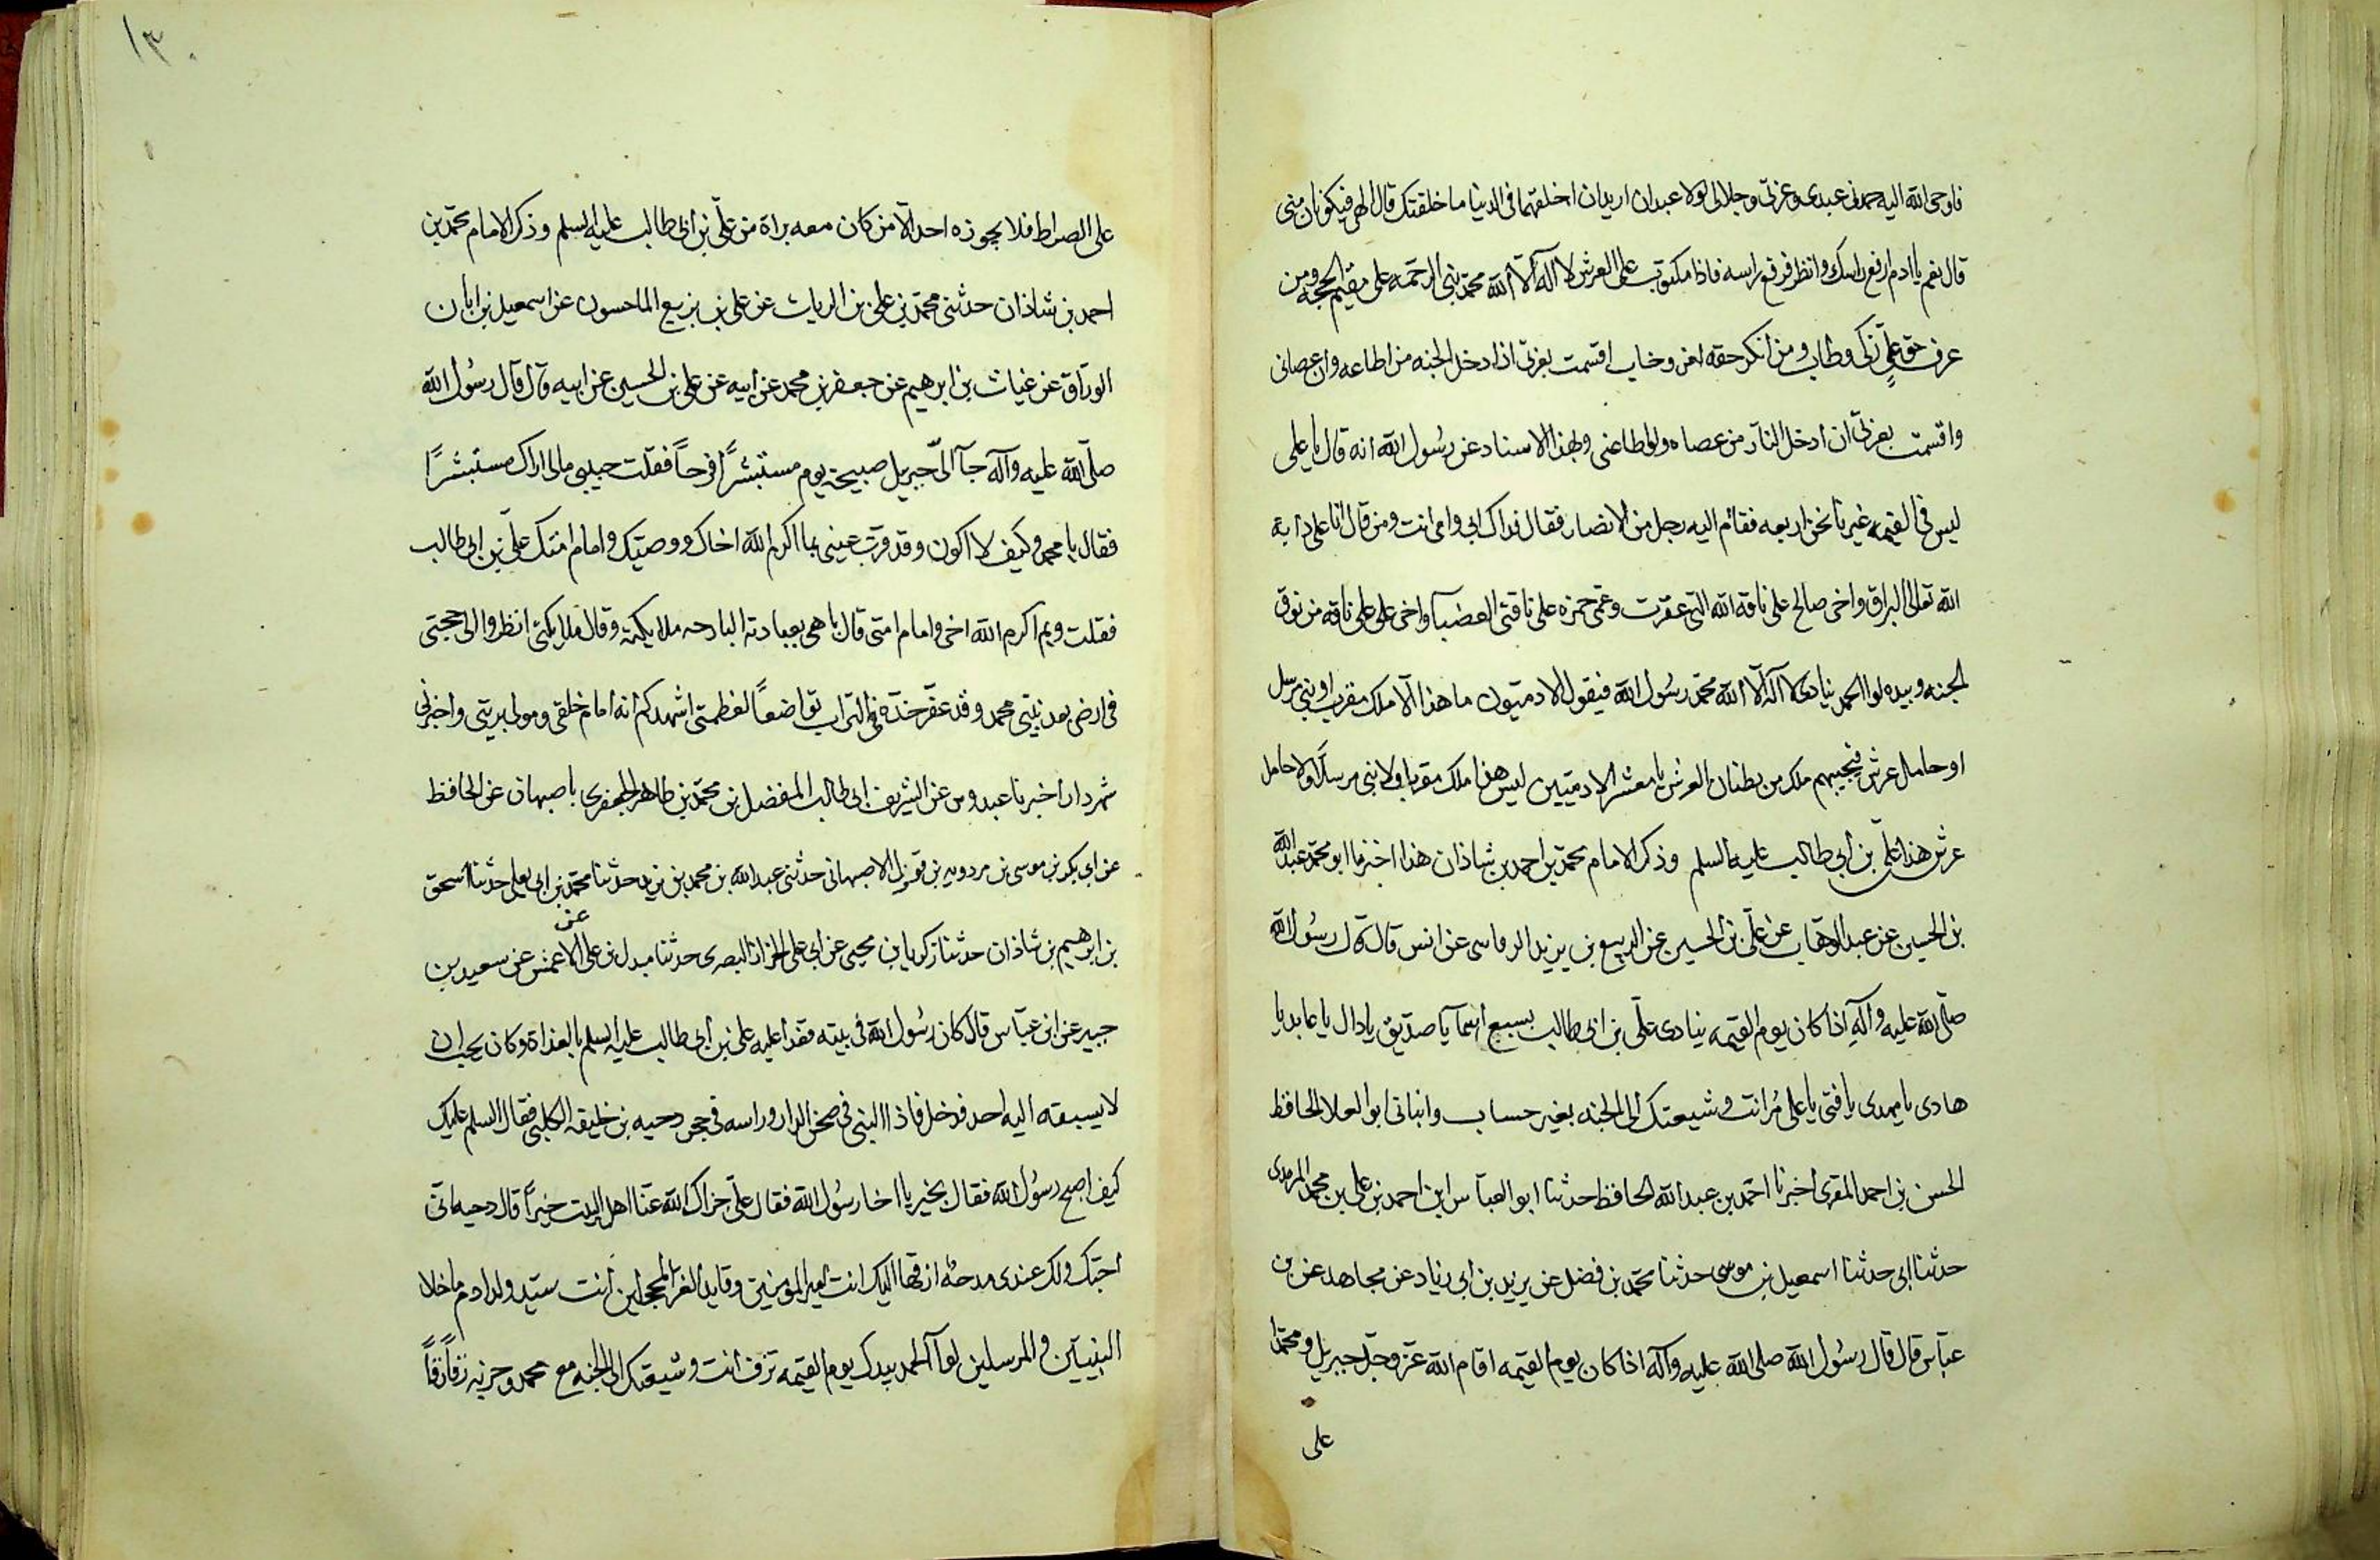 فاوحی الله الیه حمدنی عبدی وعزتی وجلالی لولا عبدان ارید ان اخلقهما فی الدنیا ما خلقتک قال الهی فیکونان منی
قال نعم یا ادم ارفع راسک وانظر فرفع راسه فاذا مکتوب علی العرش لا اله الا الله محمد نبی الرحمه علی مقیم الحجه ومن
عرف حق علی زکی وطاب ومن انکر حقه لعن وخاب اقسمت بعزتی اذا ادخل الجنه من اطاعه وان عصانی
واقسمت بعزتی ان ادخل النار من عصاه ولو اطاعنی وبهذا الاسناد عن رسول الله انه قال یا علی
لیس فی القیمه غیرنا نحن اربعه فقام الیه رجل من الانصار فقال فداک ابی وامی انت ومن قال انا علی دابة
الله تعالی البراق واخی صالح علی ناقه الله التی عقرت وعمی حمزه علی ناقتی العضبآ واخی علی علی ناقه من نوق
الجنه وبیده لوا الحمد ینادی لا اله الا الله محمد رسول الله فیقول الادمیون ما هذا الا ملک مقرب او نبی مرسل
او حامل عرش فیجیبهم ملک من بطنان العرش یا معشر الادمیین لیس هذا ملک مقربا ولا نبی مرسلا ولا حامل
عرش هذا علی بن ابی طالب علیه السلم وذکر الامام محمد بن احمد بن شاذان هذا اخبرنا ابو محمد عبدالله
بن الحسین عن عبد الوهاب عن علی بن الحسین عن الربیع بن یزید الرقاسی عن انس قال قال رسول الله
صلی الله علیه وآله اذا کان یوم القیمه ینادی علی بن ابی طالب بسبع اسمآ یا صدیق یا دال یا عابد یا
هادی یا مهدی یا فتی یا علی مر انت و شیعتک الی الجنه بغیر حساب وانبانی ابو العلا الحافظ
الحسن بن احمد المقری اخبرنا احمد بن عبد الله الحافظ حدثنا ابو العباس ابن احمد بن علی بن محمد المرهدی
حدثنا ابی حدثنا اسمعیل بن موسی حدثنا محمد بن فضل عن یزید بن ابی زیاد عن مجاهد عن بن
عباس قال قال رسول الله صلی الله علیه وآله اذا کان یوم القیمه اقام الله عز وجل جبریل ومحمدا
علی
۱۳۰
علی الصراط فلا یجوزه احد الا من کان معه براة من علی بن ابی طالب علیه السلم وذکر الامام محمد بن
احمد بن شاذان حدثنی محمد بن علی بن الریات عن علی بن بزیع الماحسون عن اسمعیل بن ابان
الوراق عن غیاث بن ابرهیم عن جعفر بن محمد عن ابیه عن علی بن الحسین عن ابیه قال قال رسول الله
صلی الله علیه وآله جآ الی جبریل صبیحة یوم مستبشرًا فرحاً فقلت حبیبی مالی اراک مستبشرًا
فقال یا محمد وکیف لا اکون وقد قرت عینی بما اکرم الله اخاک ووصیک وامام امتک علی بن ابی طالب
فقلت وبم اکرم الله اخی وامام امتی قال باهی بعبادته البارحه ملائکته وقال ملایکتی انظروا الی حجتی
فی ارضی بعد نبیی محمد وقد عفر خده فی التراب تواضعاً لعظمتی اشهدکم انه امام خلقی ومولی بریتی واخبرنی
شهردار اخبرنا عبدوس عن الشریف ابی طالب المفضل بن محمد بن طاهر الجعفری باصبهان عن الحافظ
عن ابی بکر بن موسی بن مردویه بن فورک الاصبهانی حدثنی عبد الله بن محمد بن یزید حدثنا محمد بن ابی یعلی حدثنا اسحق
بن ابرهیم بن شاذان حدثنا زکریا بن یحیی عن ابی علی الخزاز البصری حدثنا مبدل بن علی عن الاعمش عن سعید بن
جبیر عن ابن عباس قال کان رسول الله فی بیته فغدا علیه علی بن ابی طالب علیه السلم بالغداة وکان یحب ان
لا یسبقه الیه احد فدخل فاذا النبی فی صحن الدار وراسه فی حجر دحیه بن خلیفه الکلبی فقال السلم علیک
کیف اصبح رسول الله فقال بخیر یا اخا رسول الله فقال علی جزاک الله عنا اهل البیت خیراً قال دحیه انی
احبک ولک عندی مدحة ازفها الیک انت امیر المومنین وقاید الغر المحجلین انت سید ولد ادم ما خلا
النبیین والمرسلین لوآ الحمد بیدک یوم القیمه تزف انت وشیعتک الی الجنه مع محمد وحزبه زفاً زفاً